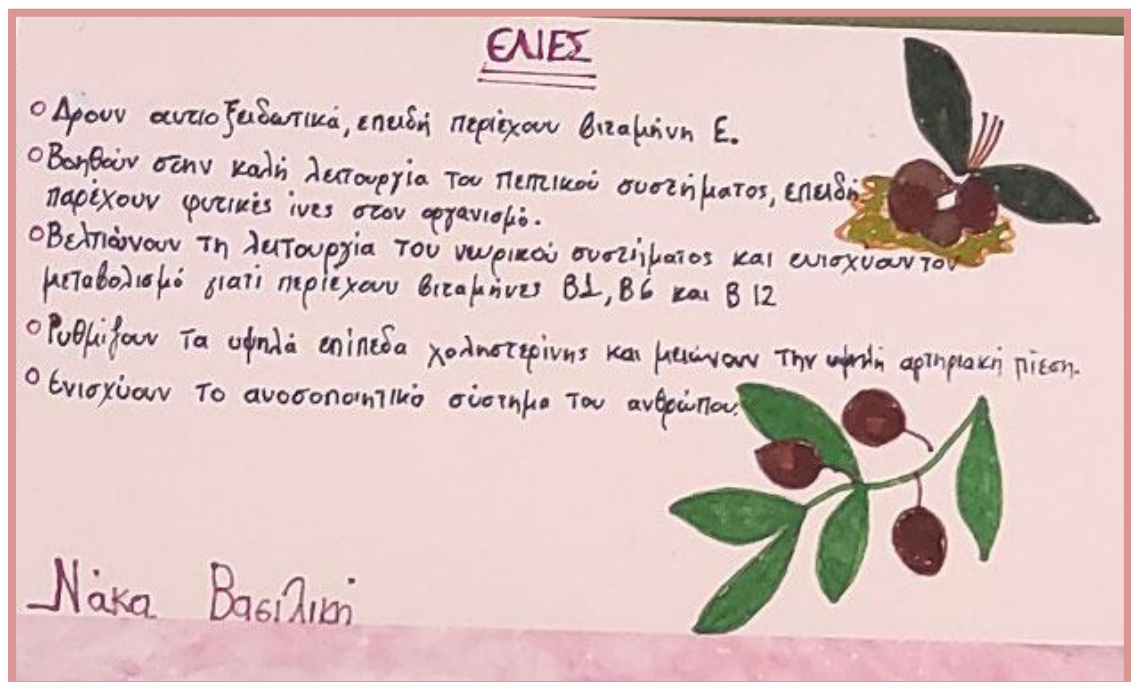 ΕΛΙΕΣ
Δρουν αντιοξειδωτικά, επειδή περιέχουν βιταμήνη Ε.
Βοηθούν στην καλή λειτουργία του πεπτικού συστήματος, επειδή
παρέχουν φυτικές ίνες στον οργανισμό.
Βελτιώνουν τη λειτουργία του νευρικού συστήματος και ενισχύουν τον
μεταβολισμό γιατί περιέχουν βιταμήνες Β1, Β6 και Β12
Ρυθμίζουν τα υψηλά επίπεδα χοληστερίνης και μειώνουν την υψηλή αρτηριακή πίεση.
Ενισχύουν το ανοσοποιητικό σύστημα του ανθρώπου.
Νάκα Βασιλική